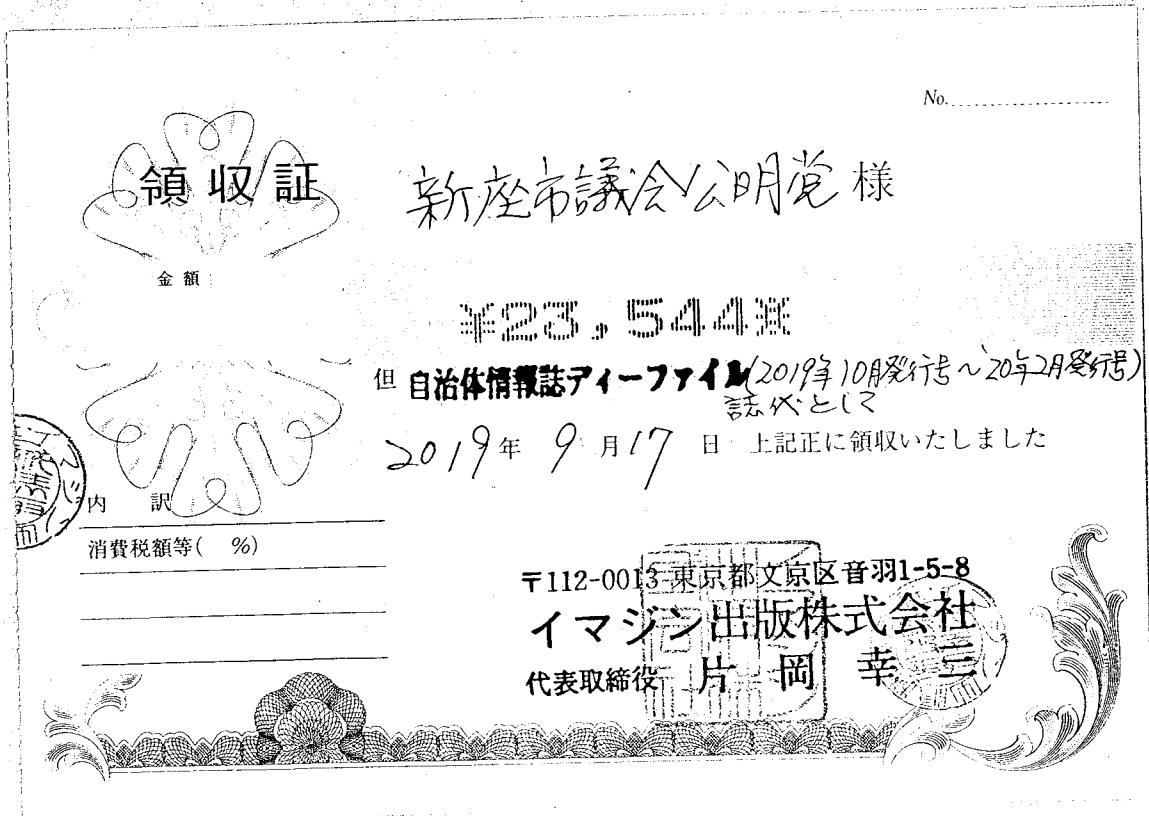 No.
領収証
新座市議会公明党 様
金額
¥23,544※
但 自治体情報誌ディーファイル(2019年10月発行号~'20年2月発行号)
誌代として
2019年 9月17日 上記正に領収いたしました
内 訳
消費税額等( %)
〒112-0013 東京都文京区音羽1-5-8
イマジン出版株式会社
代表取締役 片岡幸三